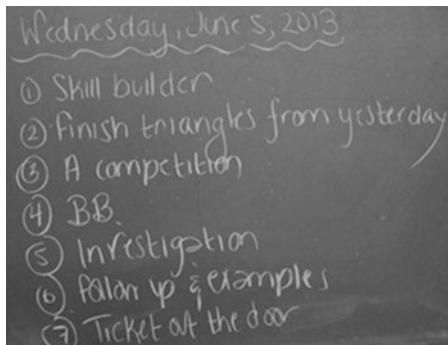 Wednesday, June 5, 2013
① Skill builder
② Finish triangles from yesterday
③ A competition
④ BB.
⑤ Investigation
⑥ Follow up & examples
⑦ Ticket out the door